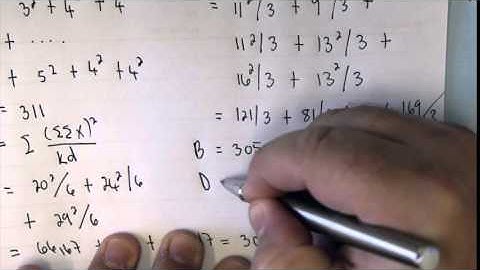 3² + 4² + 4²
+ ....
+ 5² + 4² + 4²
= 311
= Σ (ΣΣX)²
kd
= 20²/6 + 24²/6
+ 29²/6
= 66.167 + + 17 = 30
= 11²/3 + 9²/3 +
11²/3 + 13²/3 +
16²/3 + 13²/3
= 121/3 + 81/ 169/3
B = 305
D